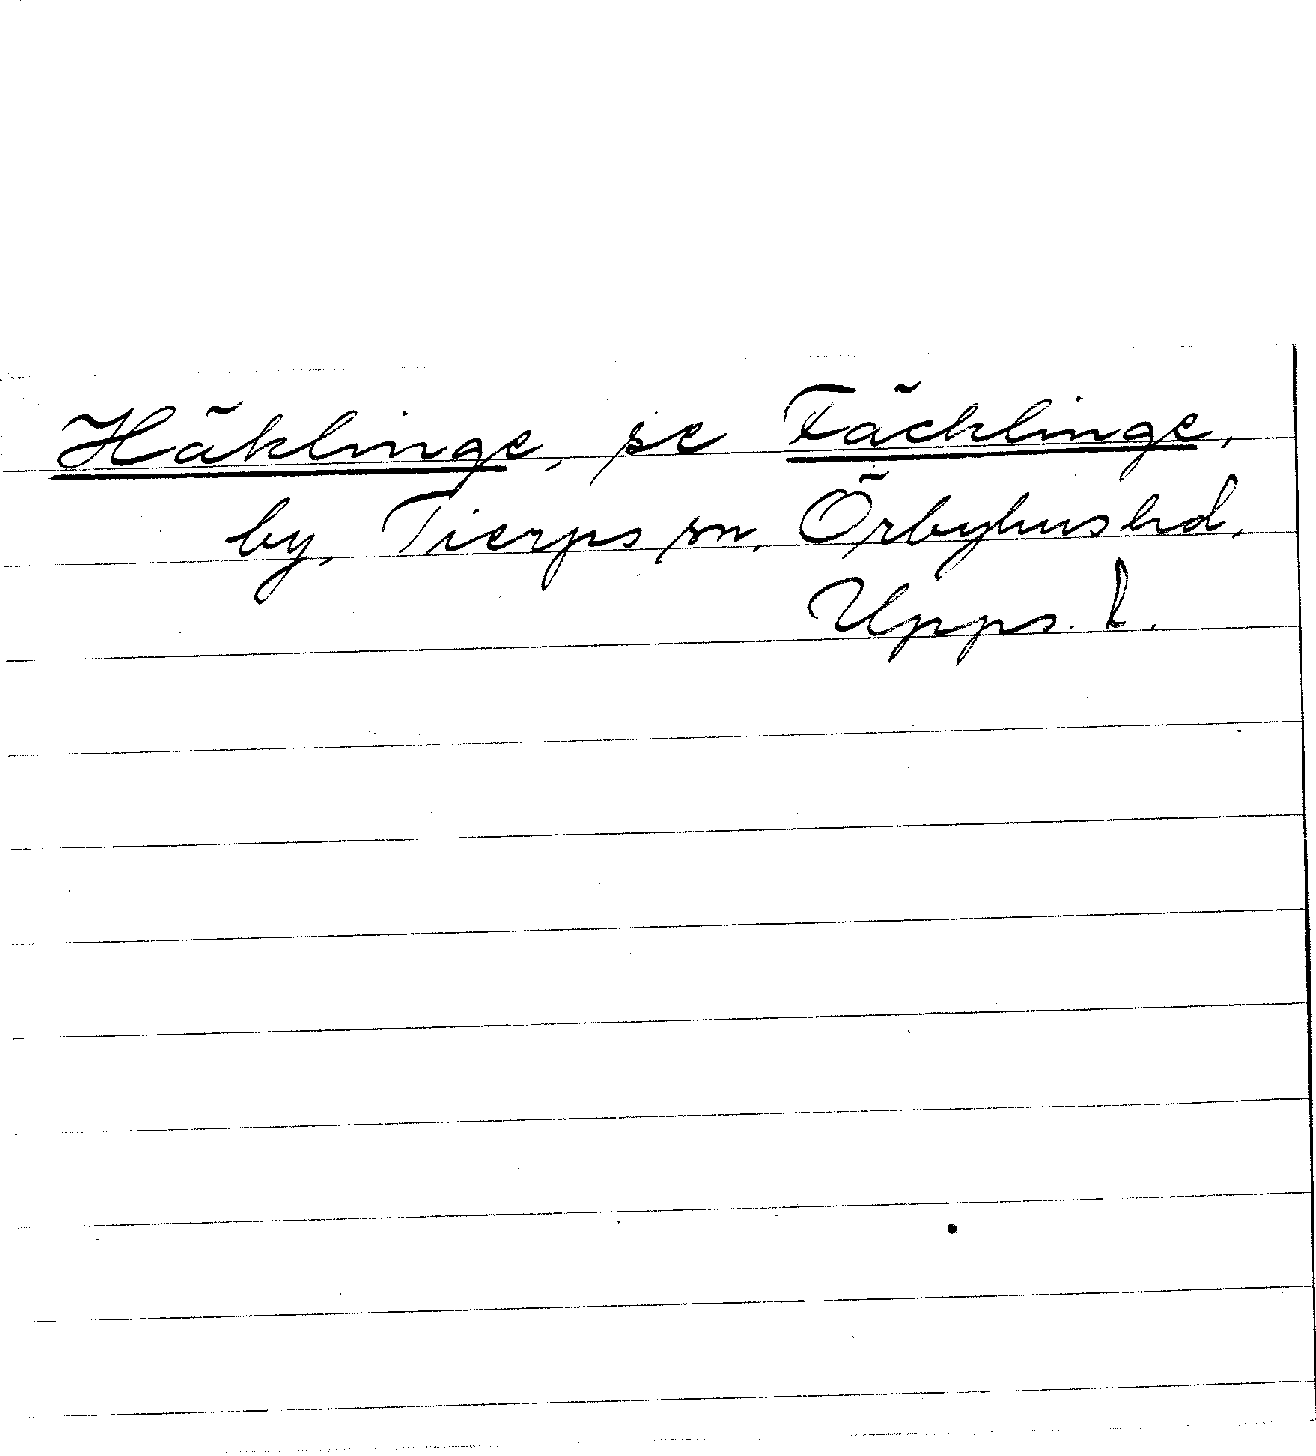 Häklinge, se Fäcklinge,
by, Tierps sn, Örbyhus hd,
Upps. l.